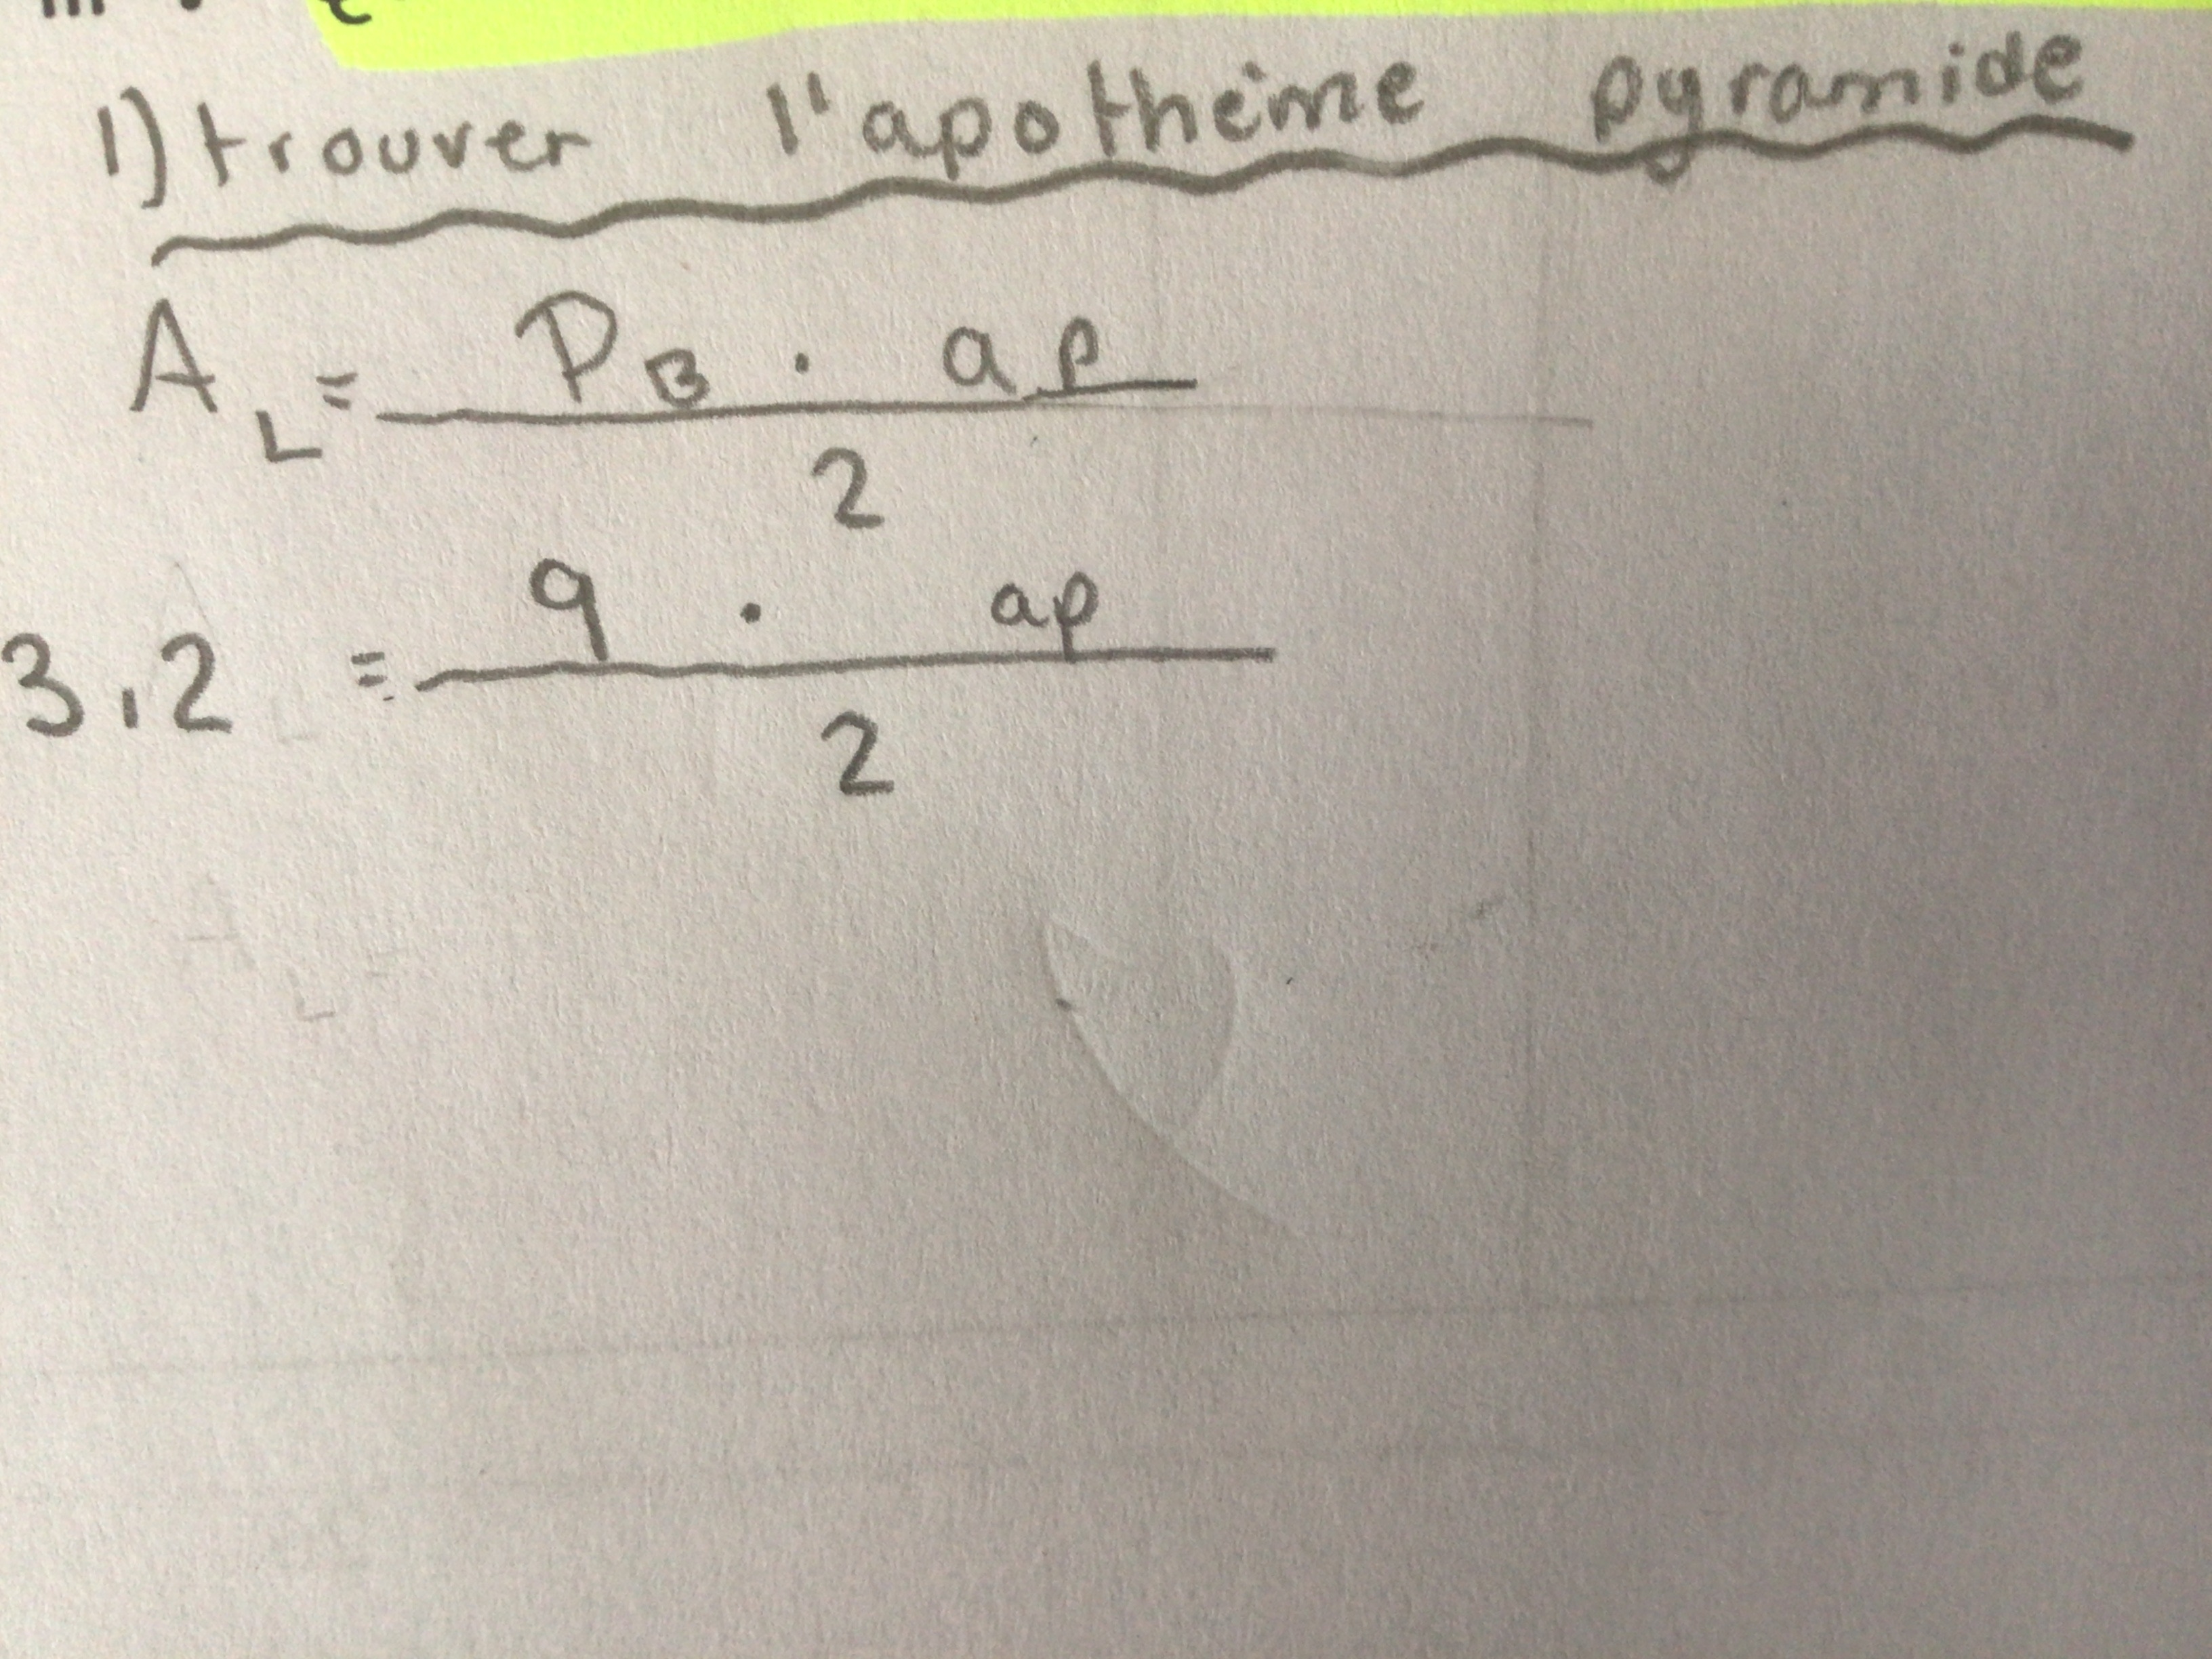 1) trouver l'apothème pyramide
A_L = P_B · ap
2
3,2 = 9 · ap
2